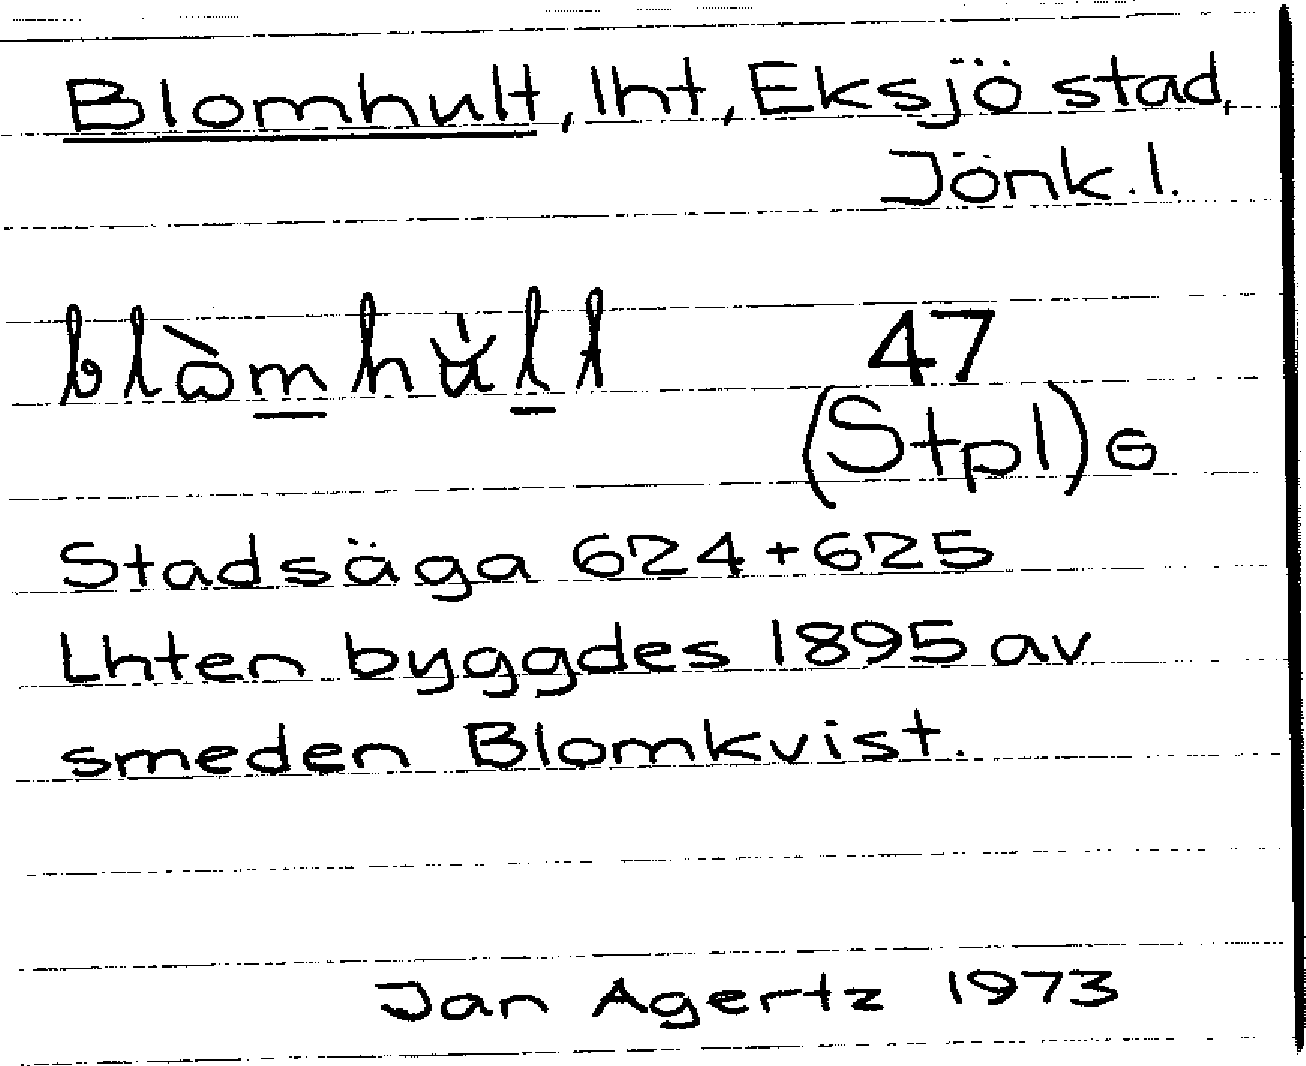 Blomhult, lht, Eksjö stad,
Jönk. l.
47
(Stpl) G
Stadsäga 624+625
Lhten byggdes 1895 av
smeden Blomkvist.
Jan Agertz 1973